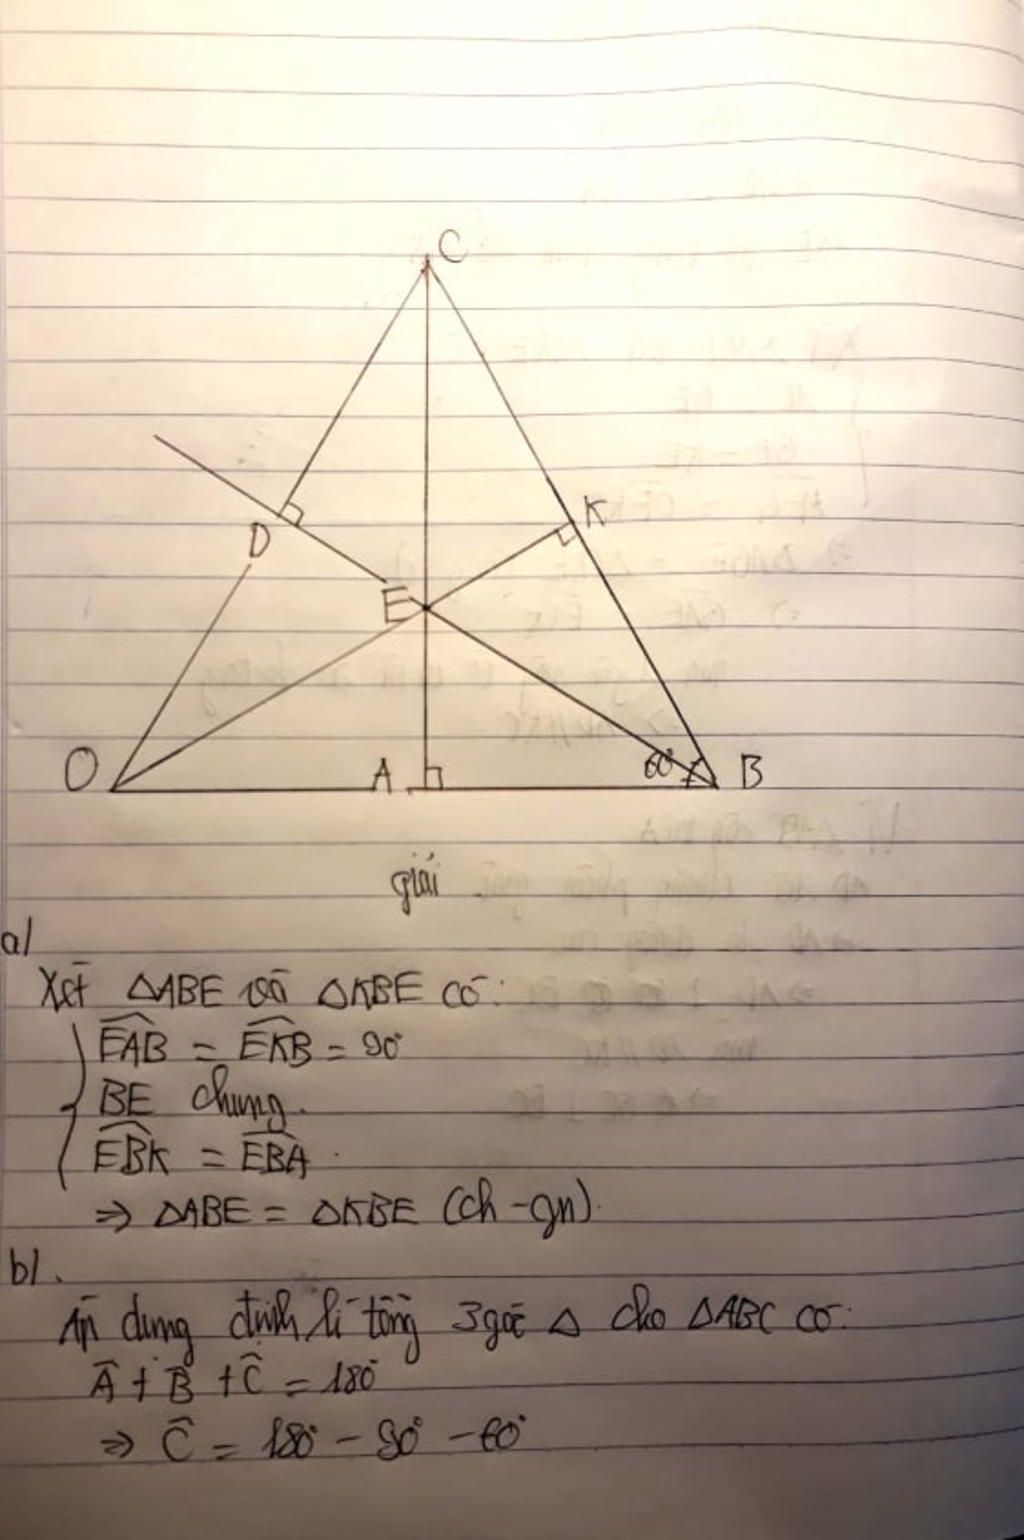 C
K
D
E
O
A
60°
B
giải
a/
Xét △ABE và △KBE có:
EAB = EKB = 90°
BE chung.
EBK = EBA.
⇒ △ABE = △KBE (ch-gn).
b/.
Áp dụng định lí tổng 3 góc △ cho △ABC có:
Â + B̂ + Ĉ = 180°
⇒ Ĉ = 180° - 90° - 60°